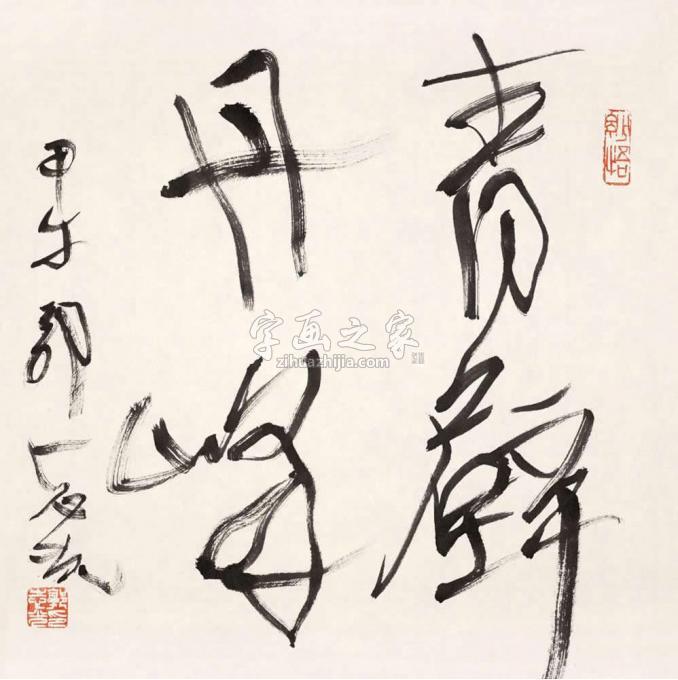 青壁
丹峰
甲午郭石夫
字画之家
zihuazhijia.com